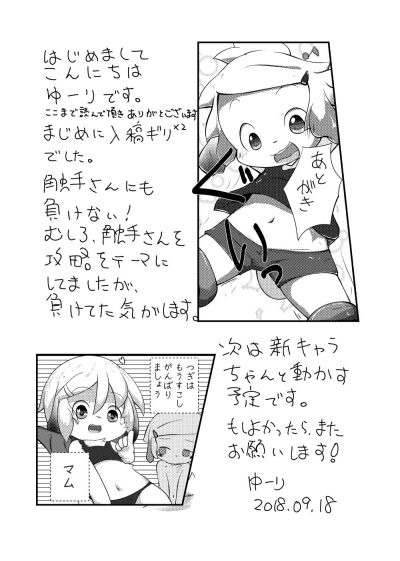 はじめまして
こんにちは
ゆーりです。
ここまで読んで頂きありがとございます
まじめに入稿ギリ×2
でした。
触手さんにも
負けない!
むしろ、触手さんを
攻略をテーマに
してましたが、
負けてた気がします。
あと
がき
ぐ
いっ
つぎは
もうすこし
がんばり
ましょう
マム
次は新キャラ
ちゃんと動かす
予定です。
もしよかったら、また
お願いします!
ゆーり
2018.09.18